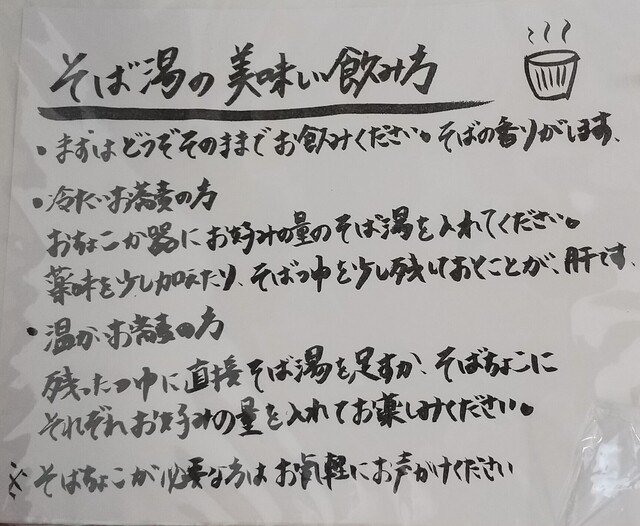 そば湯の美味い飲み方
・まずはどうぞそのままでお飲みください。そばの香りがします、
・冷たいお蕎麦の方
おちょこか器にお好みの量のそば湯を入れてください。
薬味を少し加えたり、そばつゆを少し残しておくことが、肝です、
・温かいお蕎麦の方
残ったつゆに直接そば湯を足すか、そばちょこに
それぞれお好みの量を入れてお楽しみください。
※そばちょこが必要な方はお気軽にお声がけください